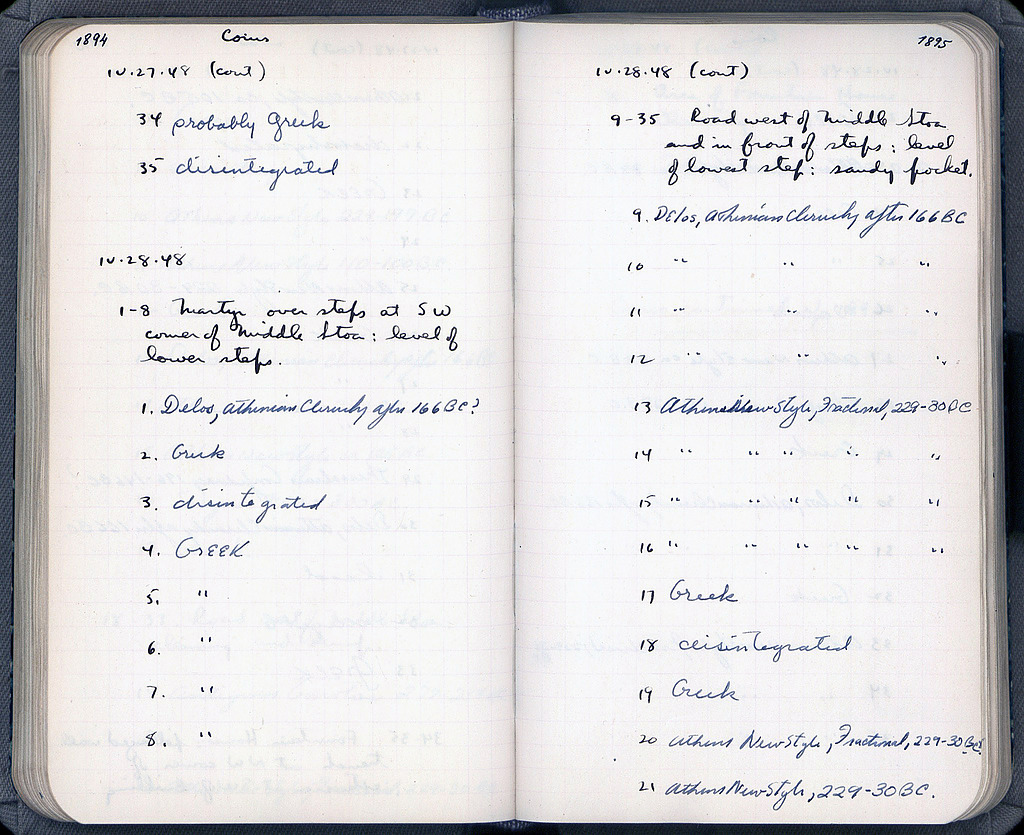 1894
Coins
IV.27.48 (cont)
34 probably Greek
35 disintegrated
IV.28.48
1-8 Martyr over steps at SW
corner of Middle Stoa: level of
lower steps.
1. Delos, Athenian Cleruchy after 166 BC?
2. Greek
3. disintegrated
4. GREEK
5. "
6. "
7. "
8. "
1895
IV.28.48 (cont)
9-35 Road west of Middle Stoa
and in front of steps: level
of lowest step: sandy pocket.
9. Delos, Athenian Cleruchy after 166 BC
10 " " "
11 " " "
12 " " "
13 Athens New Style, Fractional, 229-30 BC
14 " " " " "
15 " " " " "
16 " " " " "
17 Greek
18 disintegrated
19 Greek
20 Athens New Style, Fractional, 229-30 BC?
21 Athens New Style, 229-30 BC.